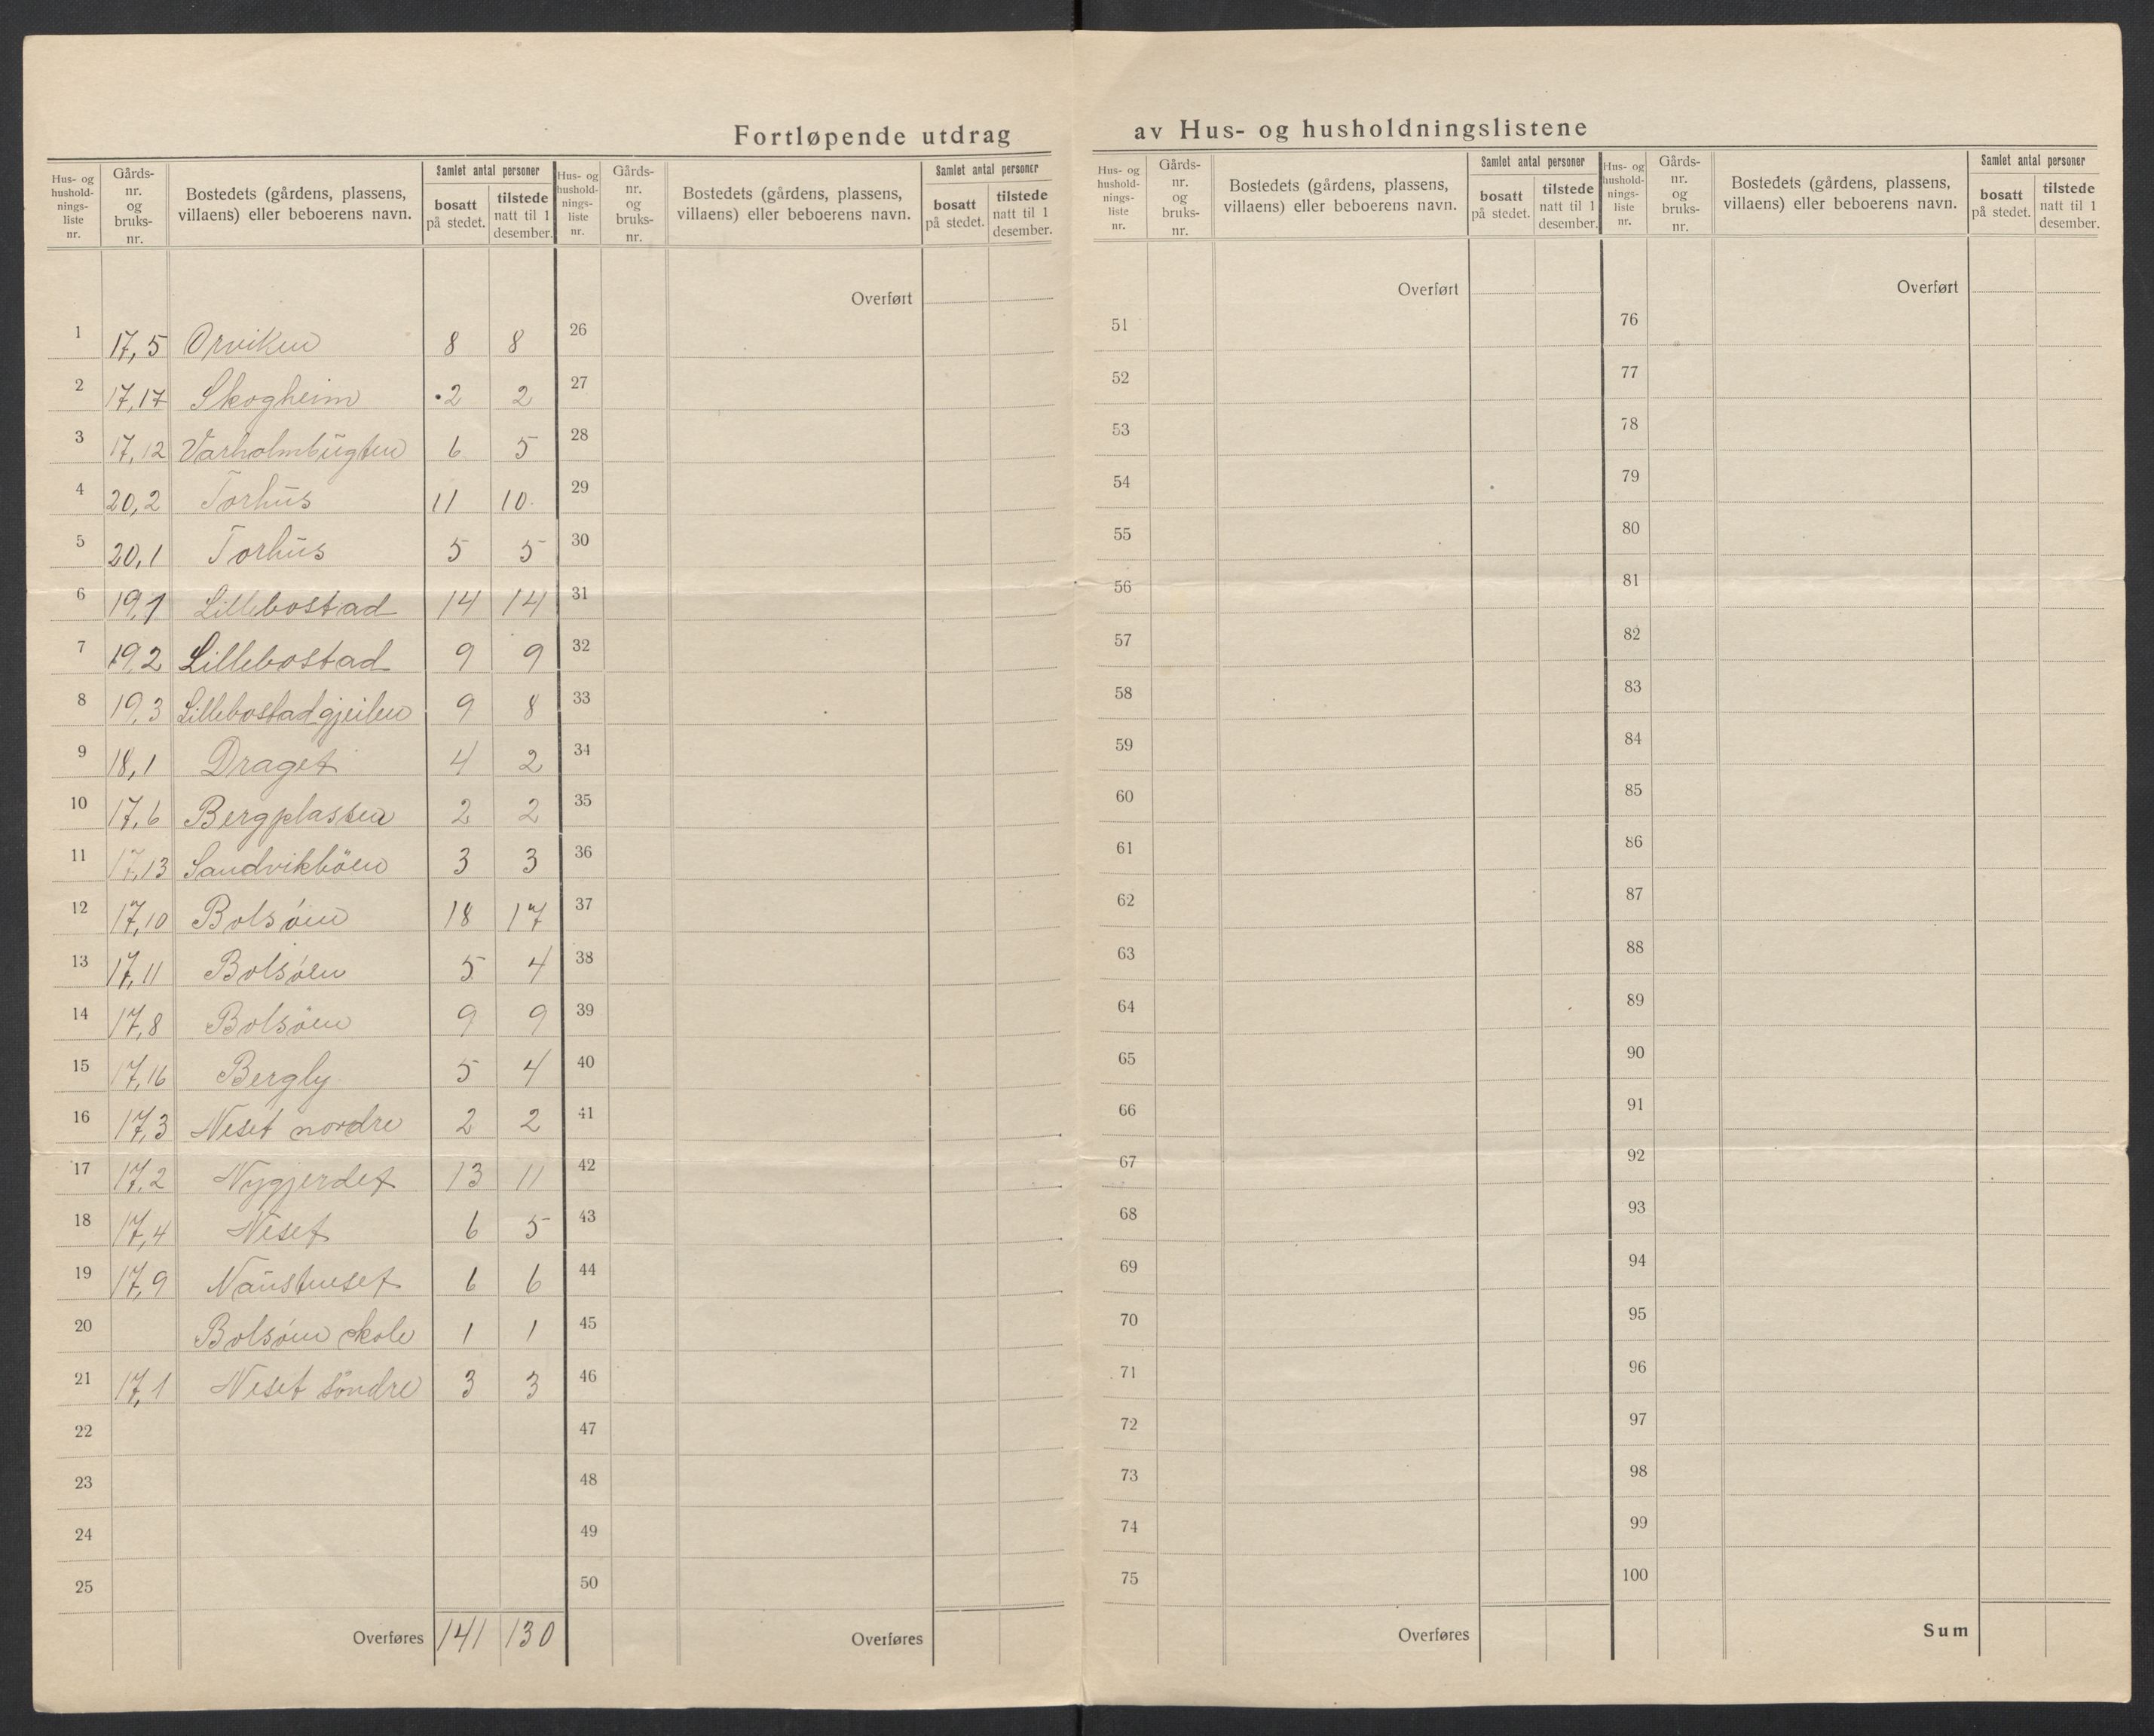 Fortløpende utdrag av Hus- og husholdningslistene
Hus- og hushold-nings-liste nr. | Gårds-nr. og bruks-nr. | Bostedets (gårdens, plassens, villaens) eller beboerens navn. | Samlet antal personer | bosatt på stedet. | tilstede natt til 1 desember.
Hus- og hushold-nings-liste nr. | Gårds-nr. og bruks-nr. | Bostedets (gårdens, plassens, villaens) eller beboerens navn. | Samlet antal personer | bosatt på stedet. | tilstede natt til 1 desember.
Hus- og hushold-nings-liste nr. | Gårds-nr. og bruks-nr. | Bostedets (gårdens, plassens, villaens) eller beboerens navn. | Samlet antal personer | bosatt på stedet. | tilstede natt til 1 desember.
Hus- og hushold-nings-liste nr. | Gårds-nr. og bruks-nr. | Bostedets (gårdens, plassens, villaens) eller beboerens navn. | Samlet antal personer | bosatt på stedet. | tilstede natt til 1 desember.
Overført Overført Overført
1 17,5 Orviken 8 8 26 51 76
2 17,17 Skogheim 2 2 27 52 77
3 17,12 Varholmbugten 6 5 28 53 78
4 20,2 Torhus 11 10 29 54 79
5 20,1 Torhus 5 5 30 55 80
6 19,1 Lillebostad 14 14 31 56 81
7 19,2 Lillebostad 9 9 32 57 82
8 19,3 Lillebostadgjeilen 9 8 33 58 83
9 18,1 Draget 4 2 34 59 84
10 17,6 Bergplassen 2 2 35 60 85
11 17,13 Sandvikböen 3 3 36 61 86
12 17,10 Bolsöen 18 17 37 62 87
13 17,11 Bolsöen 5 4 38 63 88
14 17,8 Bolsöen 9 9 39 64 89
15 17,16 Bergly 5 4 40 65 90
16 17,3 Neset nordre 2 2 41 66 91
17 17,2 Nygjerdet 13 11 42 67 92
18 17,4 Neset 6 5 43 68 93
19 17,9 Naustneset 6 6 44 69 94
20 Bolsöen skole 1 1 45 70 95
21 17,1 Neset söndre 3 3 46 71 96
22 47 72 97
23 48 73 98
24 49 74 99
25 50 75 100
Overføres 141 130 Overføres Overføres Sum